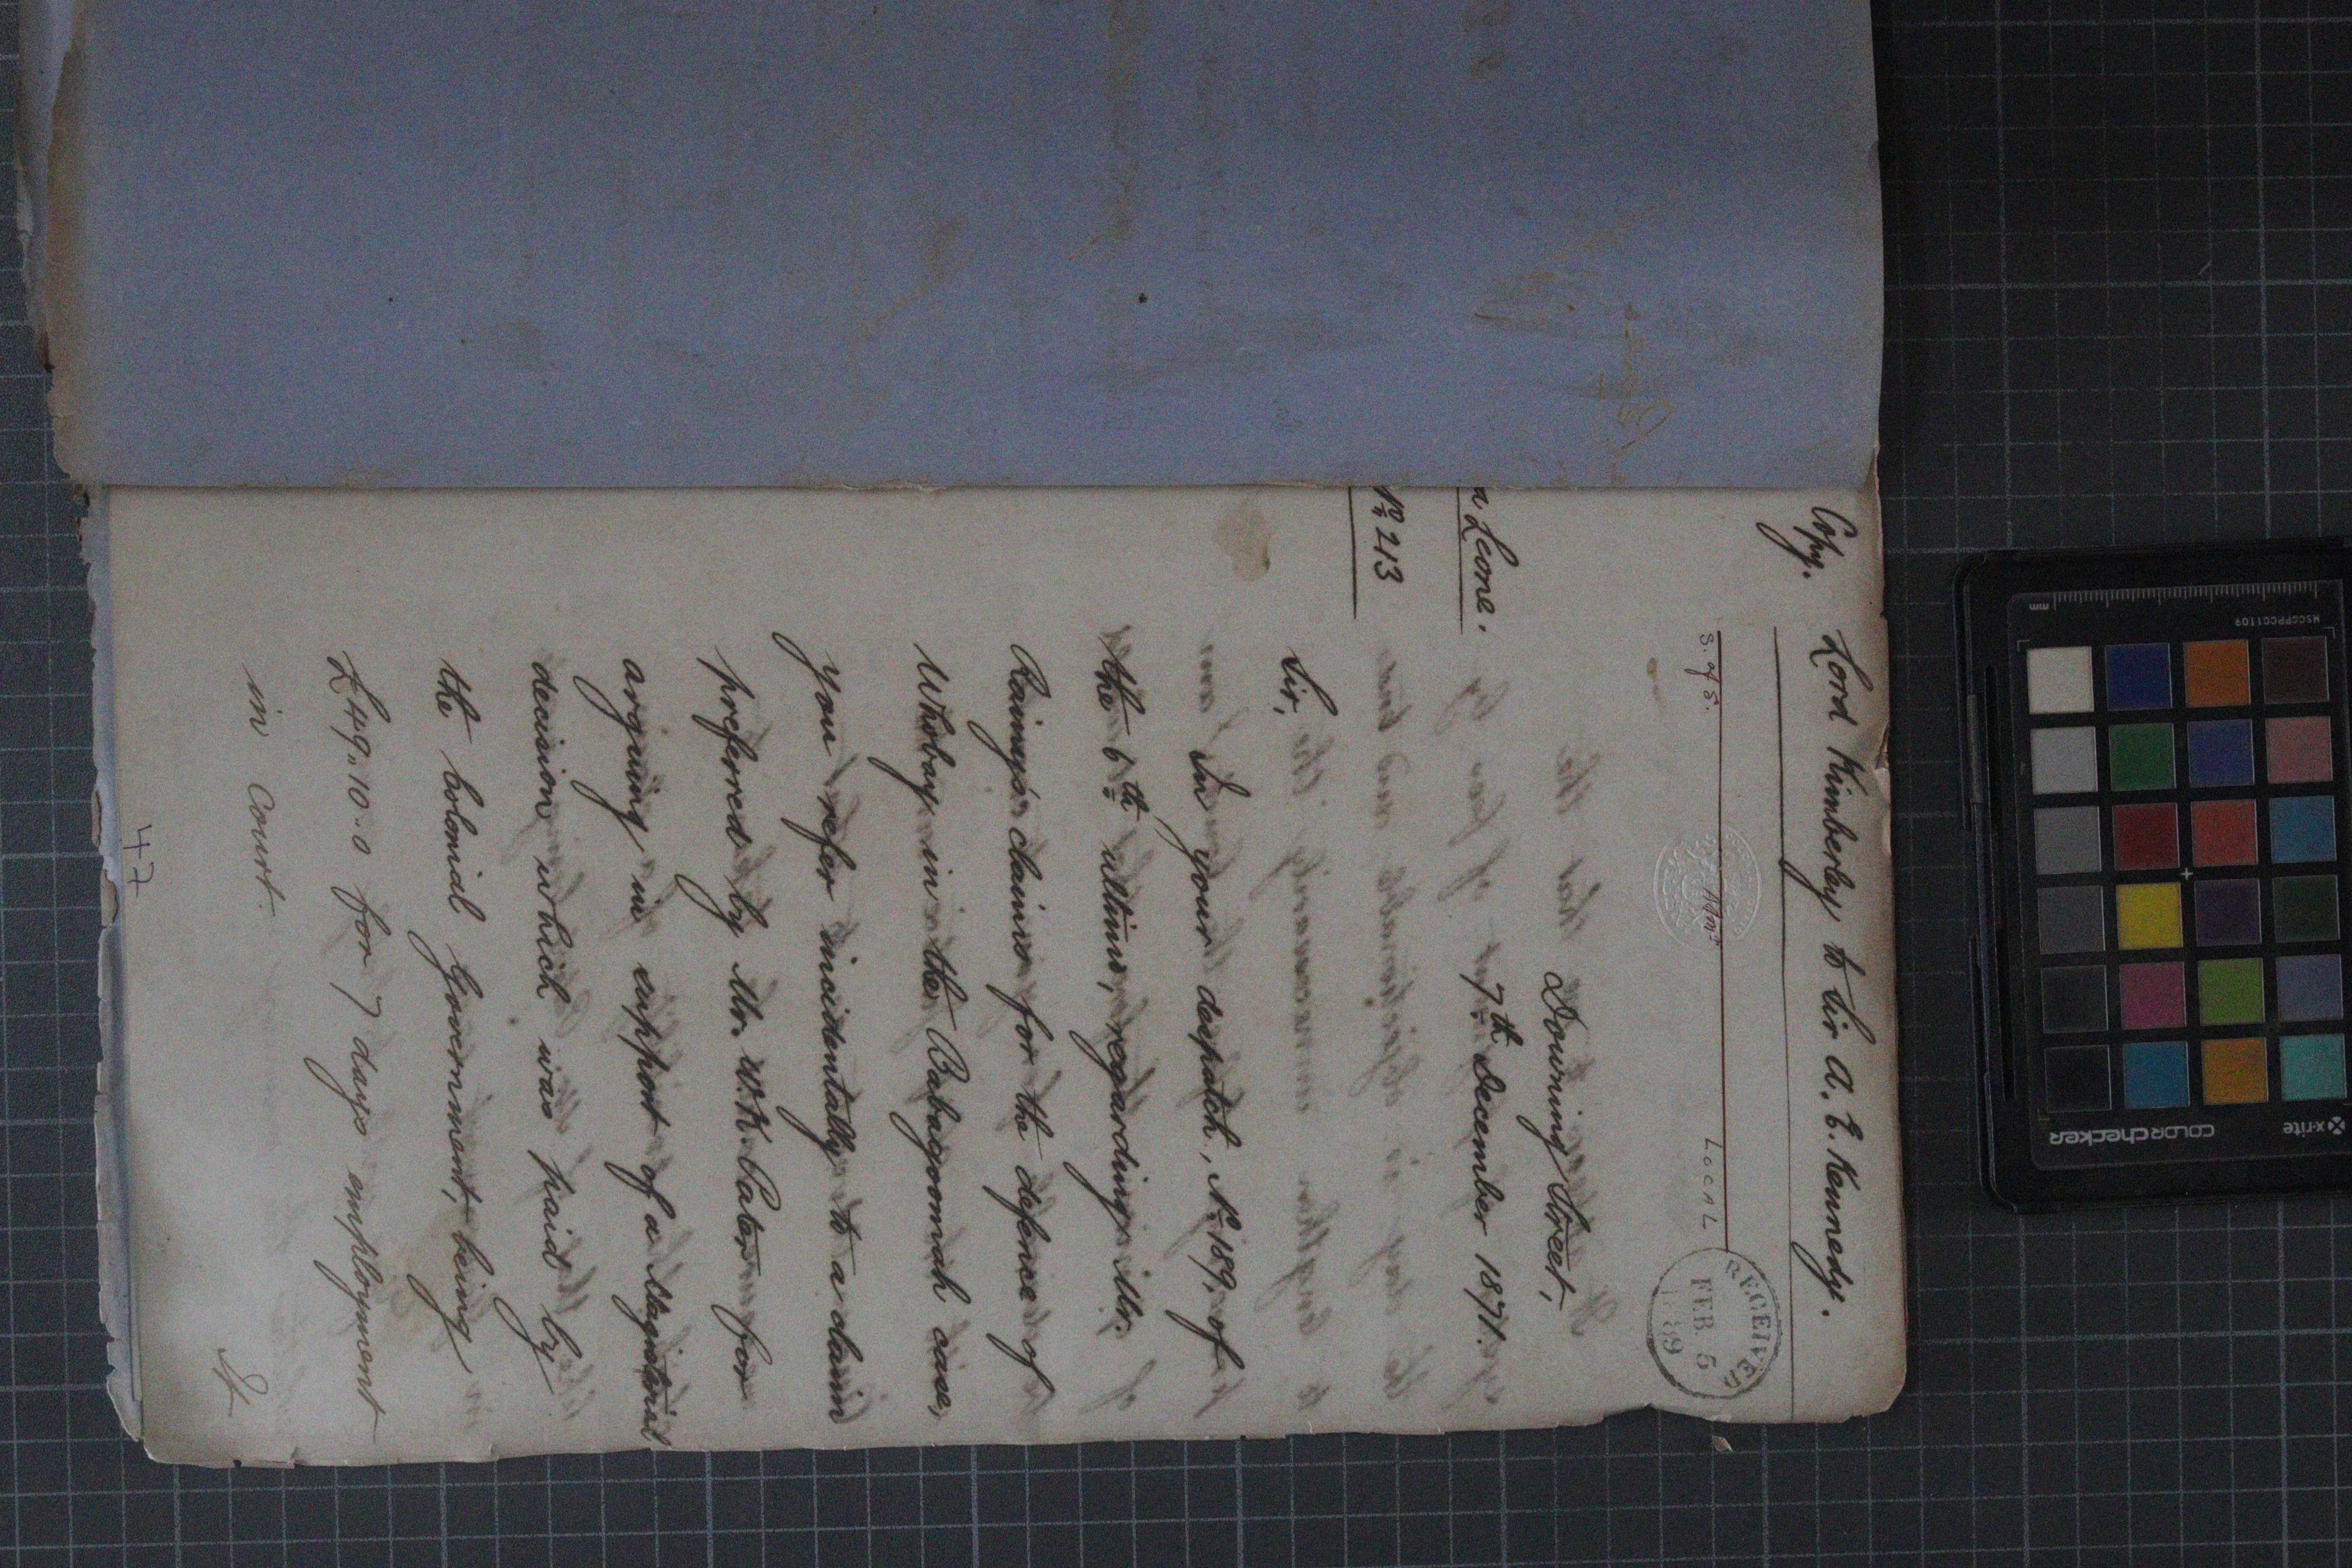 Copy.
Lord Kimberley to Sir A. E. Kennedy.
S. of S. Admt LOCAL
RECEIVED
FEB. 5
1889
Downing Street,
a Leone.
7th December 1871.
No 213
Sir,
In your despatch, No 189, of
the 6th ultimo, regarding Mr.
Rainy's claims for the defence of
in the Babagoomah case,
you refer incidentally to a claim
preferred by Mr. W. H. Pater for
arguing in support of a Magisterial
decision which was paid by
the Colonial Government, being
£49.,10.,0 for 7 days employment
in Court.
It
47
x-rite
colorchecker
MSCCPPCC1109
mm